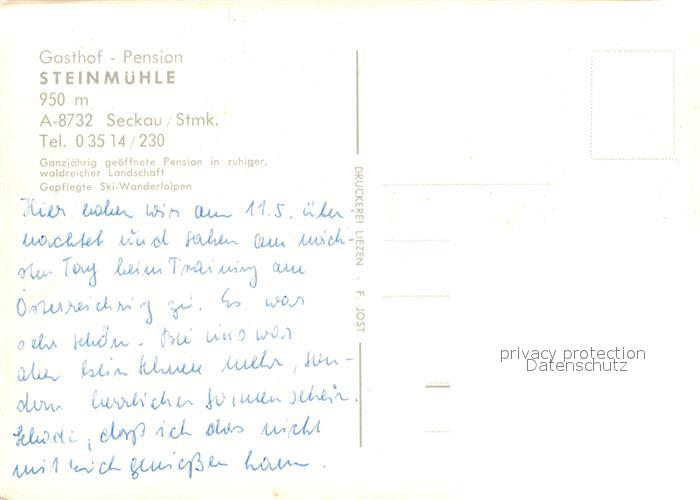 Gasthof - Pension
STEINMÜHLE
950 m
A-8732 Seckau / Stmk.
Tel. 0 35 14 / 230
Ganzjährig geöffnete Pension in ruhiger,
waldreicher Landschaft
Gepflegte Ski-Wanderloipen
Hier haben wir am 11.5. über-
nachtet und sahen am näch-
sten Tag beim Training am
Österreichring zu. Es war
sehr schön. Bei uns war
aber kein Schnee mehr, son-
dern herrlicher Sonnenschein.
Schade, daß ich das nicht
mit euch genießen kann.
DRUCKEREI LIEZEN · F. JOST
privacy protection
Datenschutz